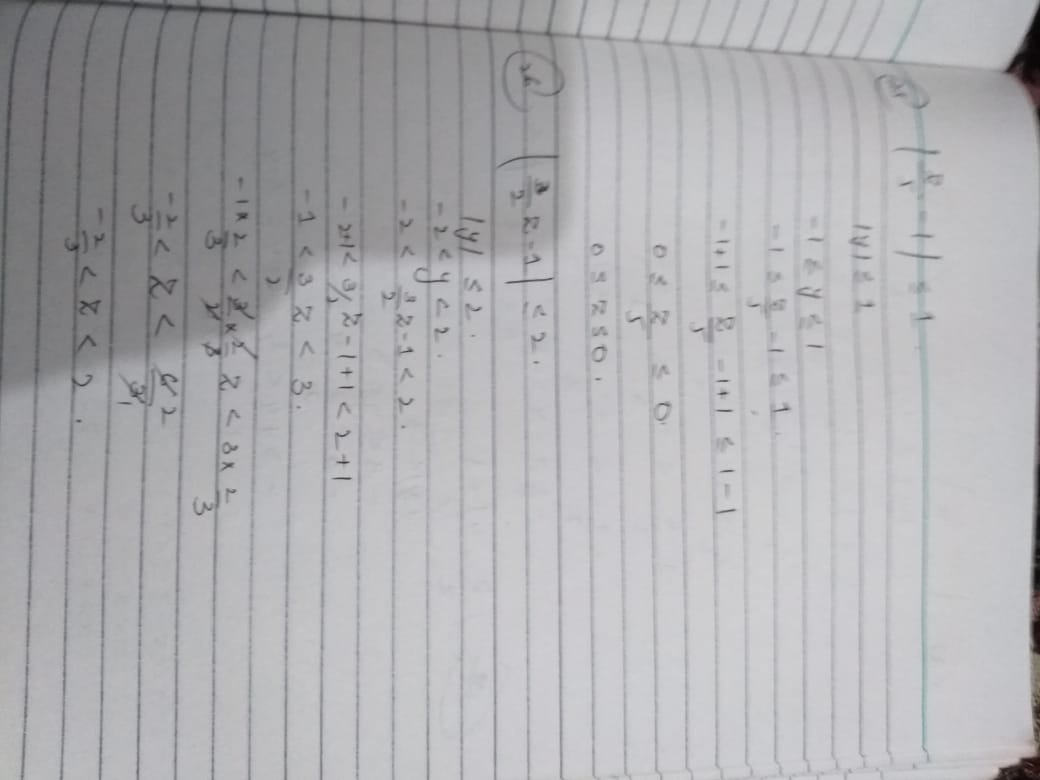 25 | z/5 - 1 | ≤ 1
|y| ≤ 1
-1 ≤ y ≤ 1
-1 ≤ z/5 - 1 ≤ 1.
-1+1 ≤ z/5 - 1+1 ≤ 1-1
0 ≤ z/5 ≤ 0.
0 ≤ z ≤ 0.
26 | 3/2 z - 1 | ≤ 2.
|y| ≤ 2.
-2 < y < 2.
-2 < 3/2 z - 1 < 2.
-2+1 < 3/2 z - 1 + 1 < 2+1
-1 < 3/2 z < 3.
-1 × 2/3 < 3/2 × 2/3 z < 3 × 2/3
-2/3 < z < 6/3 2/1
-2/3 < z < 2.